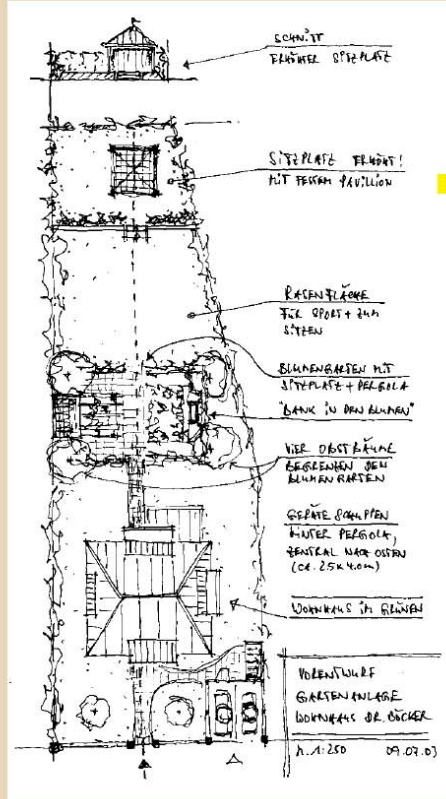 SCHNITT
ERHÖHTER SITZPLATZ
SITZPLATZ ERHÖHT!
MIT FESTEM PAVILLION
RASENFLÄCHE
FÜR SPORT + ZUM
SITZEN
BLUMENGARTEN MIT
SITZPLATZ + PERGOLA
"BANK IN DEN BLUMEN"
VIER OBSTBÄUME
BEGRENZEN DEN
BLUMENGARTEN
GERÄTESCHUPPEN
HINTER PERGOLA,
ZENTRAL NACH OSTEN
(CA. 2.5 x 4.0 m)
WOHNHAUS IM GRÜNEN
VORENTWURF
GARTENANLAGE
WOHNHAUS DR. BÖCKER
M. 1:250 09.07.03